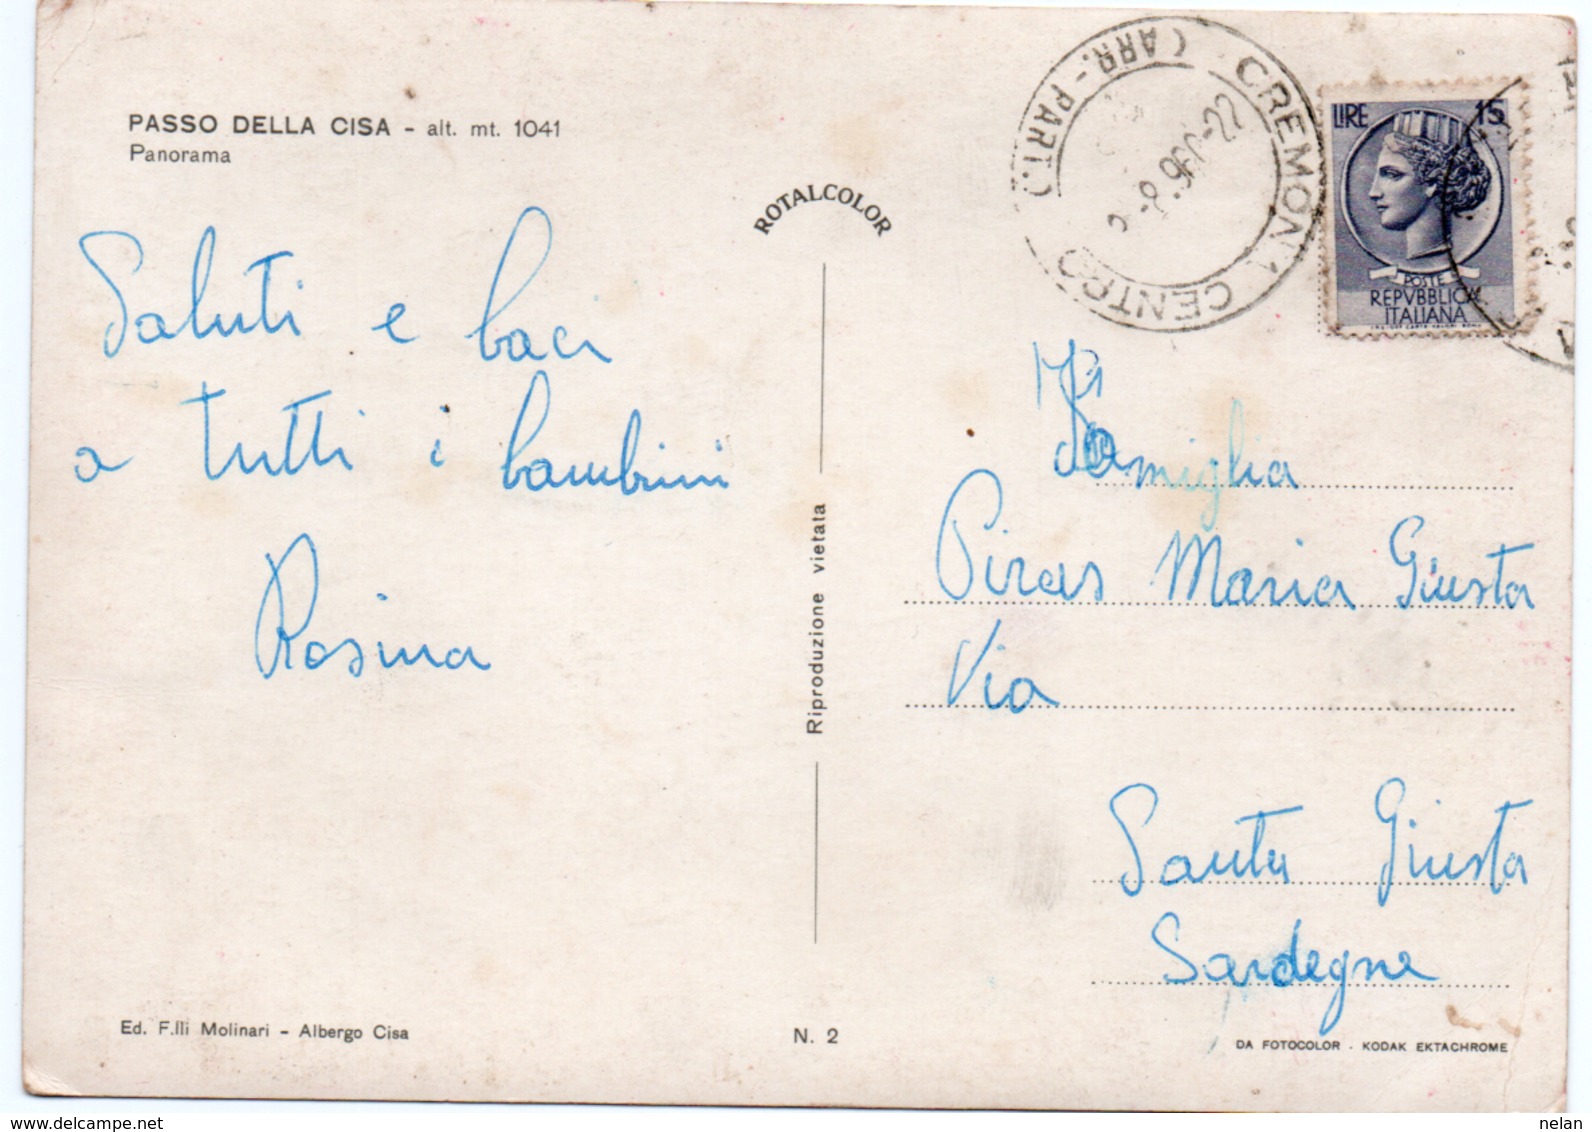 PASSO DELLA CISA - alt. mt. 1041
Panorama
ROTALCOLOR
Saluti e baci
a tutti i bambini
Rosina
Riproduzione vietata
Ed. F.lli Molinari - Albergo Cisa
N. 2
CREMONA CENTRO
(ARR.-PART.)
LIRE 15
POSTE
REPVBBLICA
ITALIANA
Famiglia
Piras Maria Giusta
Via
Santa Giusta
Sardegna
DA FOTOCOLOR - KODAK EKTACHROME
www.delcampe.net
nelan